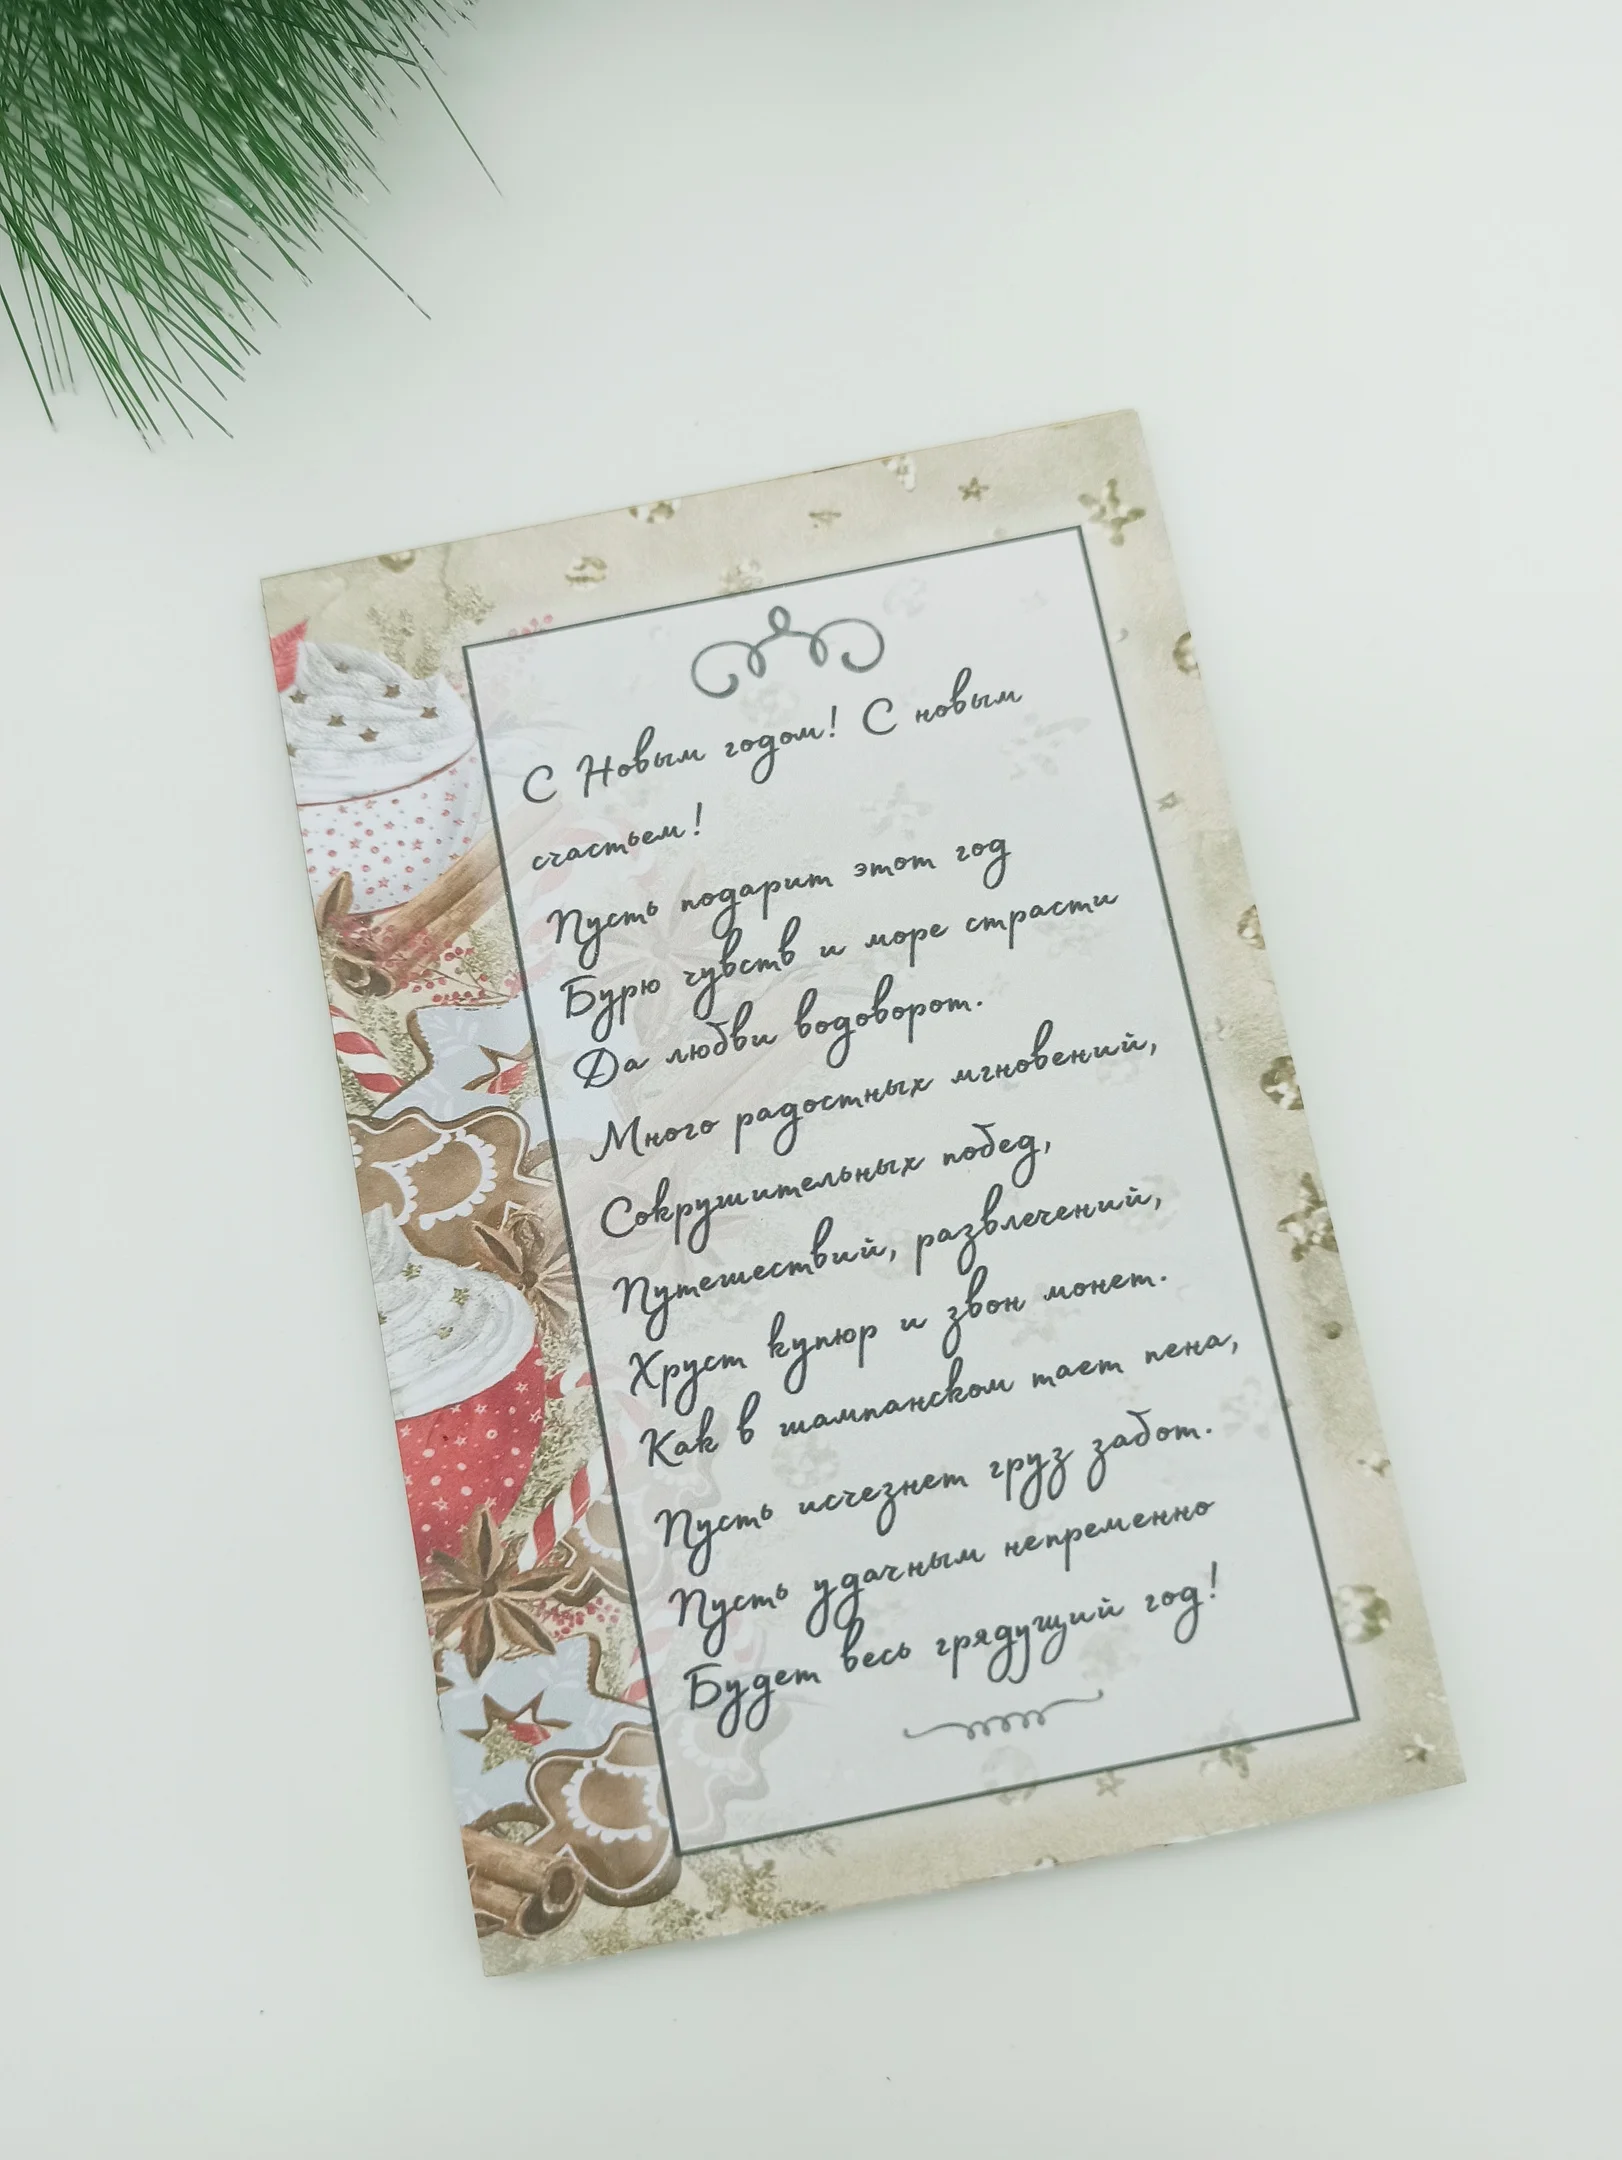 С Новым годом! С новым
счастьем!
Пусть подарит этот год
Бурю чувств и море страсти
Да любви водоворот.
Много радостных мгновений,
Сокрушительных побед,
Путешествий, развлечений,
Хруст купюр и звон монет.
Как в шампанском тает пена,
Пусть исчезнет груз забот.
Пусть удачным непременно
Будет весь грядущий год!